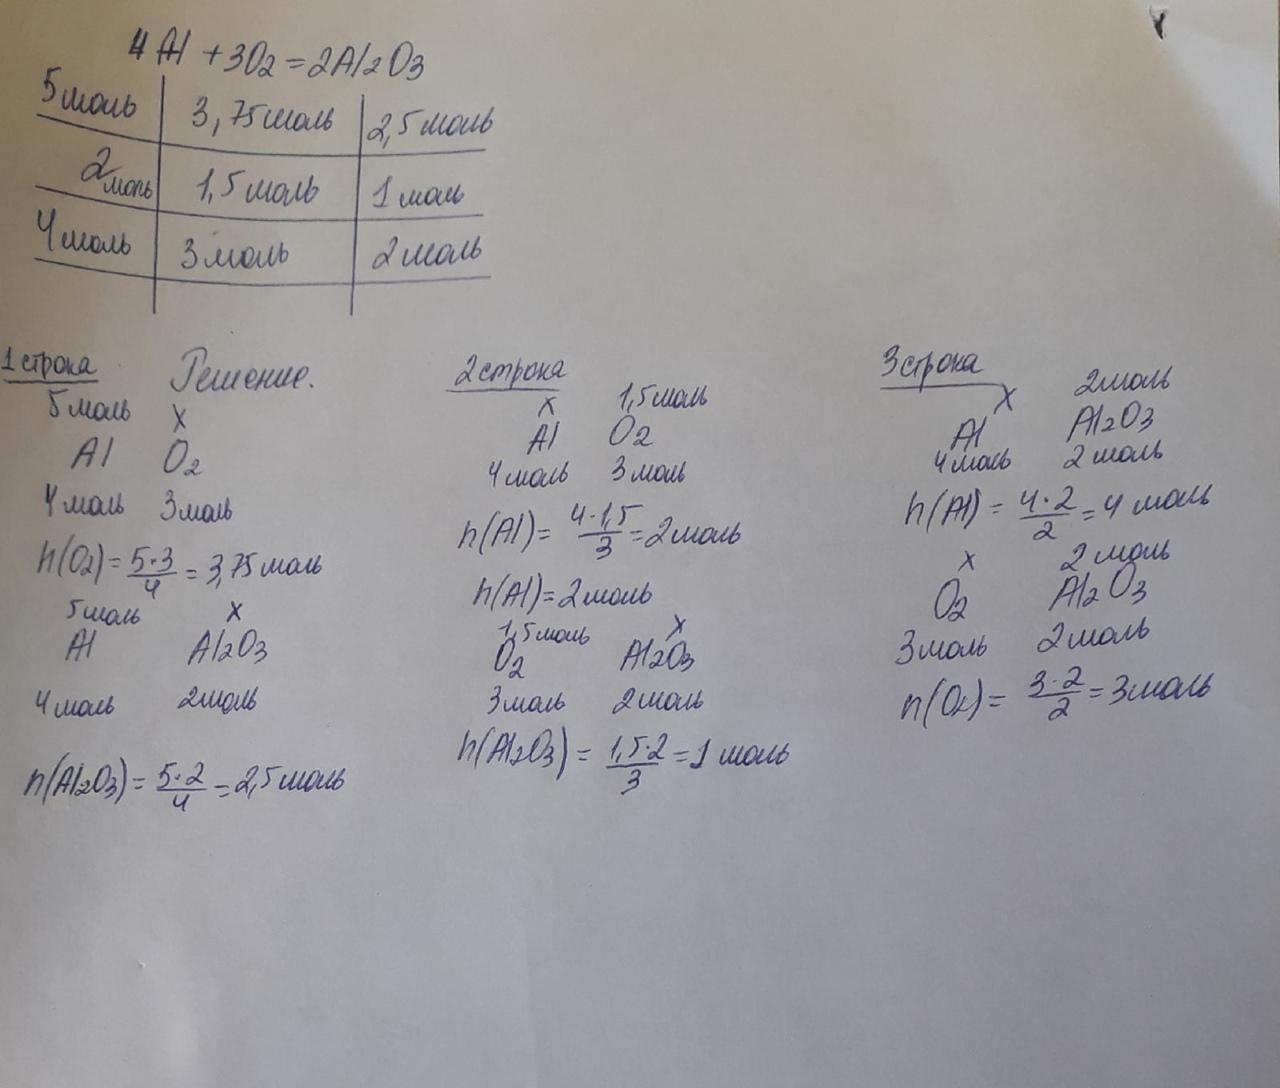 4Al + 3O2 = 2Al2O3
5 моль 3,75 моль 2,5 моль
2 моль 1,5 моль 1 моль
4 моль 3 моль 2 моль
1 строка Решение.
5 моль x
Al O2
4 моль 3 моль
n(O2) = 5·3/4 = 3,75 моль
5 моль x
Al Al2O3
4 моль 2 моль
n(Al2O3) = 5·2/4 = 2,5 моль
2 строка
x 1,5 моль
Al O2
4 моль 3 моль
n(Al) = 4·1,5/3 = 2 моль
n(Al) = 2 моль
1,5 моль x
O2 Al2O3
3 моль 2 моль
n(Al2O3) = 1,5·2/3 = 1 моль
3 строка
x 2 моль
Al Al2O3
4 моль 2 моль
n(Al) = 4·2/2 = 4 моль
x 2 моль
O2 Al2O3
3 моль 2 моль
n(O2) = 3·2/2 = 3 моль